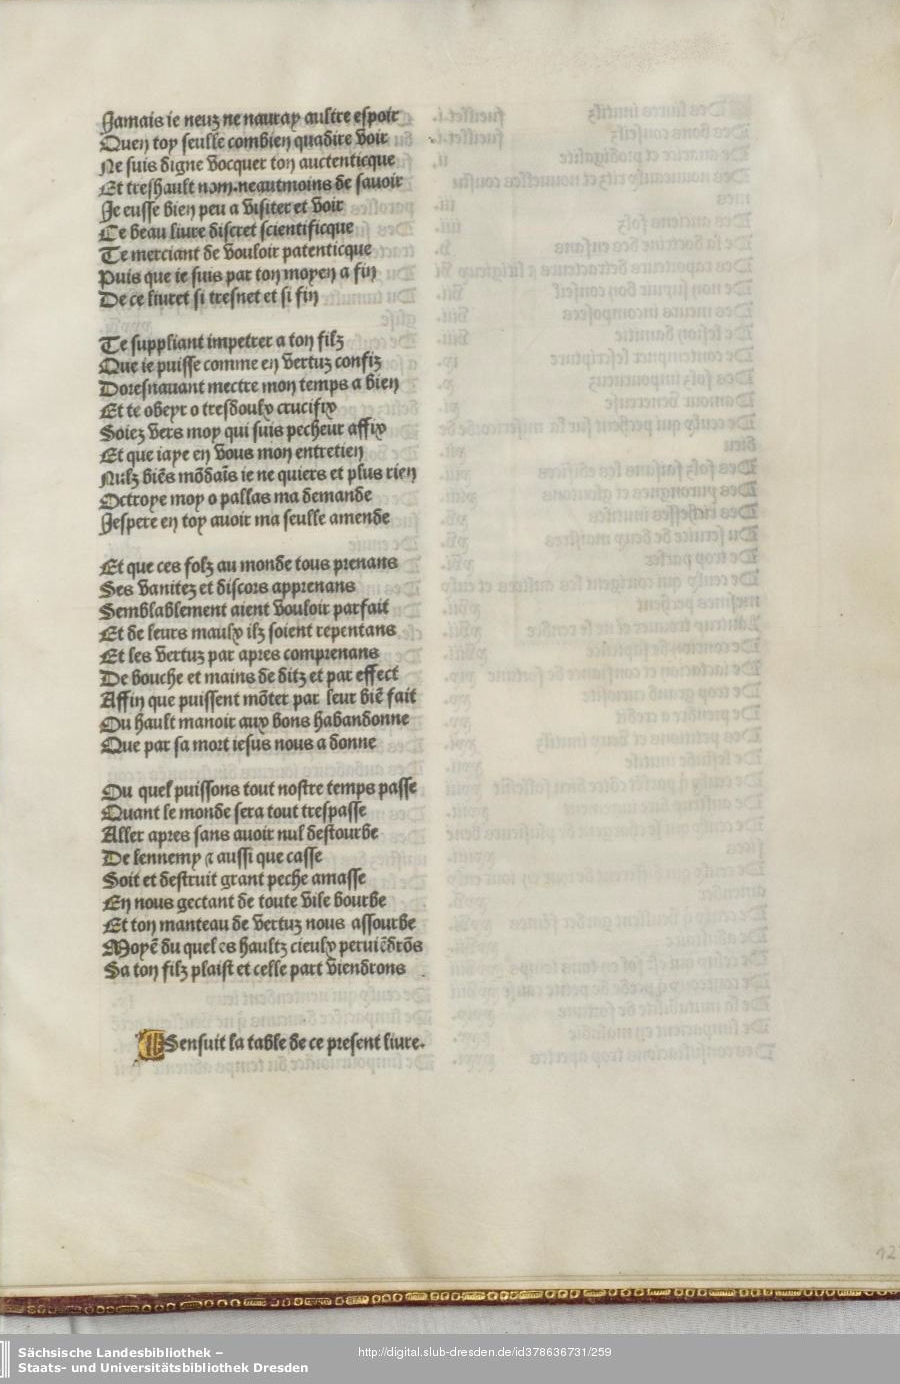 Jamais ie neuz ne nauray aultre espoir
Quen toy seulle combien quadire voir
Ne suis digne vocquer ton auctenticque
Et treshault nom.neautmoins de sauoir
Je eusse bien peu a visiter et voir
Ce beau liure discret scientificque
Te merciant de vouloir patenticque
Puis que ie suis par ton moyen a fin
De ce liuret si tresnet et si fin
Te suppliant impetrer a ton filz
Que ie puisse comme en vertuz confiz
Doresnauant mectre mon temps a bien
Et te obeyr o tresdoulx crucifix
Soiez vers moy qui suis pecheur affix
Et que iaye en vous mon entretien
Nulz biēs mōdaīs ie ne quiers et plus rien
Octroye moy o pallas ma demande
Jespere en toy auoir ma seulle amende
Et que ces folz au monde tous prenans
Ses vanitez et discors apprenans
Semblablement aient vouloir parfait
Et de leurs maulx ilz soient repentans
Et les vertuz par apres comprenans
De bouche et mains de ditz et par effect
Affin que puissent mōter par leur biē fait
Ou hault manoir aux bons habandonne
Que par sa mort iesus nous a donne
Ou quel puissons tout nostre temps passe
Quant le monde sera tout trespasse
Aller apres sans auoir nul destourbe
De lennemy ⁊ aussi que casse
Soit et destruit grant peche amasse
En nous gectant de toute vile bourbe
Et ton manteau de vertuz nous assourbe
Moyē du quel es haultz cieulx peruiēdrōs
Sa ton filz plaist et celle part viendrons
Sensuit la table de ce present liure.
Sächsische Landesbibliothek –
Staats- und Universitätsbibliothek Dresden
http://digital.slub-dresden.de/id378636731/259